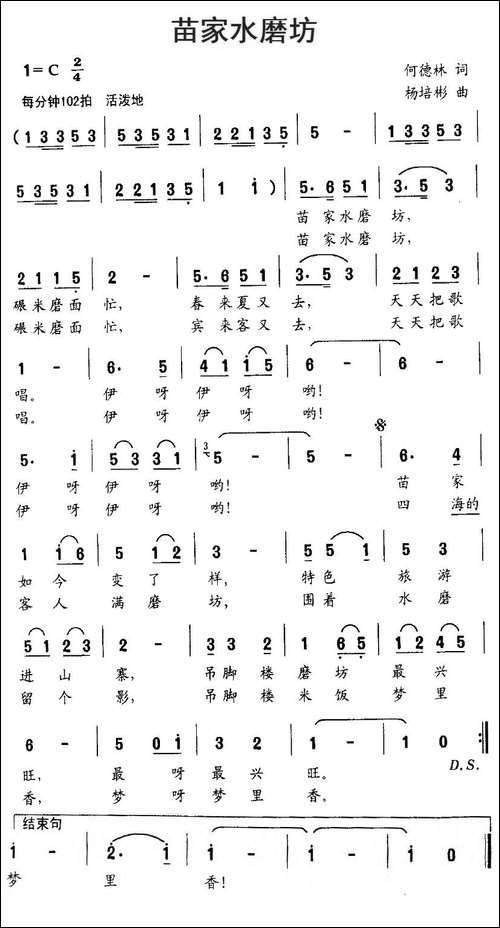 苗家水磨坊
1=C 2/4
何德林 词
每分钟102拍 活泼地
杨培彬 曲
( 1 3 3 5 3 | 5 3 5 3 1 | 2 2 1 3 5 | 5 - | 1 3 3 5 3 |
5 3 5 3 1 | 2 2 1 3 5 | 1 i ) | 5· 6 5 1 | 3· 5 3 |
苗 家 水 磨 坊,
苗 家 水 磨 坊,
2 1 1 5 | 2 - | 5· 6 5 1 | 3· 5 3 | 2 1 2 3 |
碾 米 磨 面 忙, 春 来 夏 又 去, 天 天 把 歌
碾 米 磨 面 忙, 宾 来 客 又 去, 天 天 把 歌
1 - | 6· 5 | 4 1 1 5 | 6 - | 6 - |
唱。 伊 呀 伊 呀 哟!
唱。 伊 呀 伊 呀 哟!
5· i | 5 3 3 1 | 5 - | 5 - | 6· 4 |
伊 呀 伊 呀 哟! 苗 家
伊 呀 伊 呀 哟! 四 海 的
1 i 6 | 5 1 2 | 3 - | 5 5 1 | 5 3 |
如 今 变 了 样, 特 色 旅 游
客 人 满 磨 坊, 围 着 水 磨
5 1 2 3 | 2 - | 3 3 3 | 1 6 5 | 1 2 4 5 |
进 山 寨, 吊 脚 楼 磨 坊 最 兴
留 个 影, 吊 脚 楼 米 饭 梦 里
6 - | 5 0 i | 3 2 | 1 - | 1 0 :||
旺, 最 呀 最 兴 旺。 D.S.
香, 梦 呀 梦 里 香。
结束句
i - | 2· i | i - | i - | i 0 ||
梦 里 香!